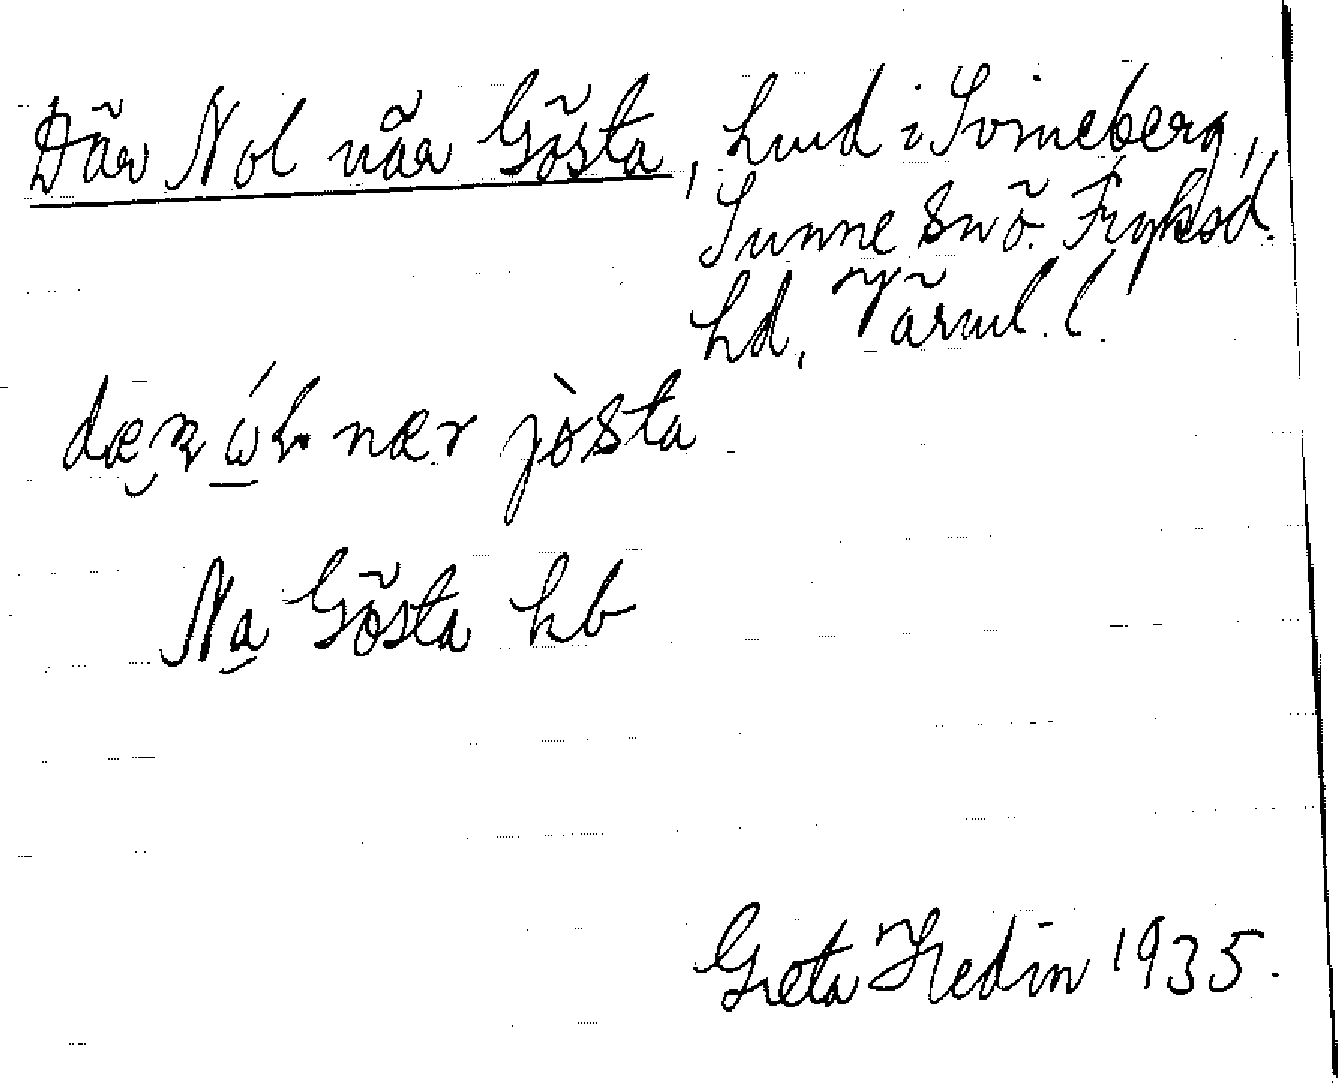 Där Nol när Gösta, hmd i Svineberg,
Sunne sn ö. Fryksd.
hd, Värml. l.
nær jòsta
Na Gösta kb
Greta Hedin 1935.